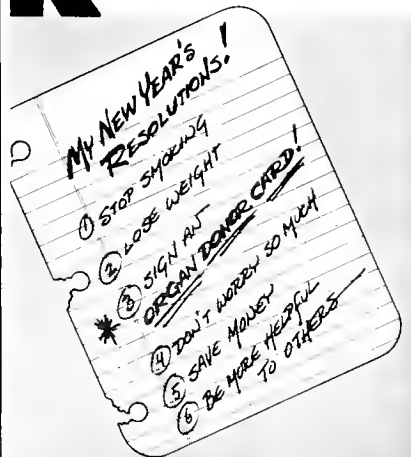 MY NEW YEAR'S
RESOLUTIONS!
① STOP SMOKING
② LOSE WEIGHT
* ③ SIGN AN
ORGAN DONOR CARD!
④ DON'T WORRY SO MUCH
⑤ SAVE MONEY
⑥ BE MORE HELPFUL
TO OTHERS